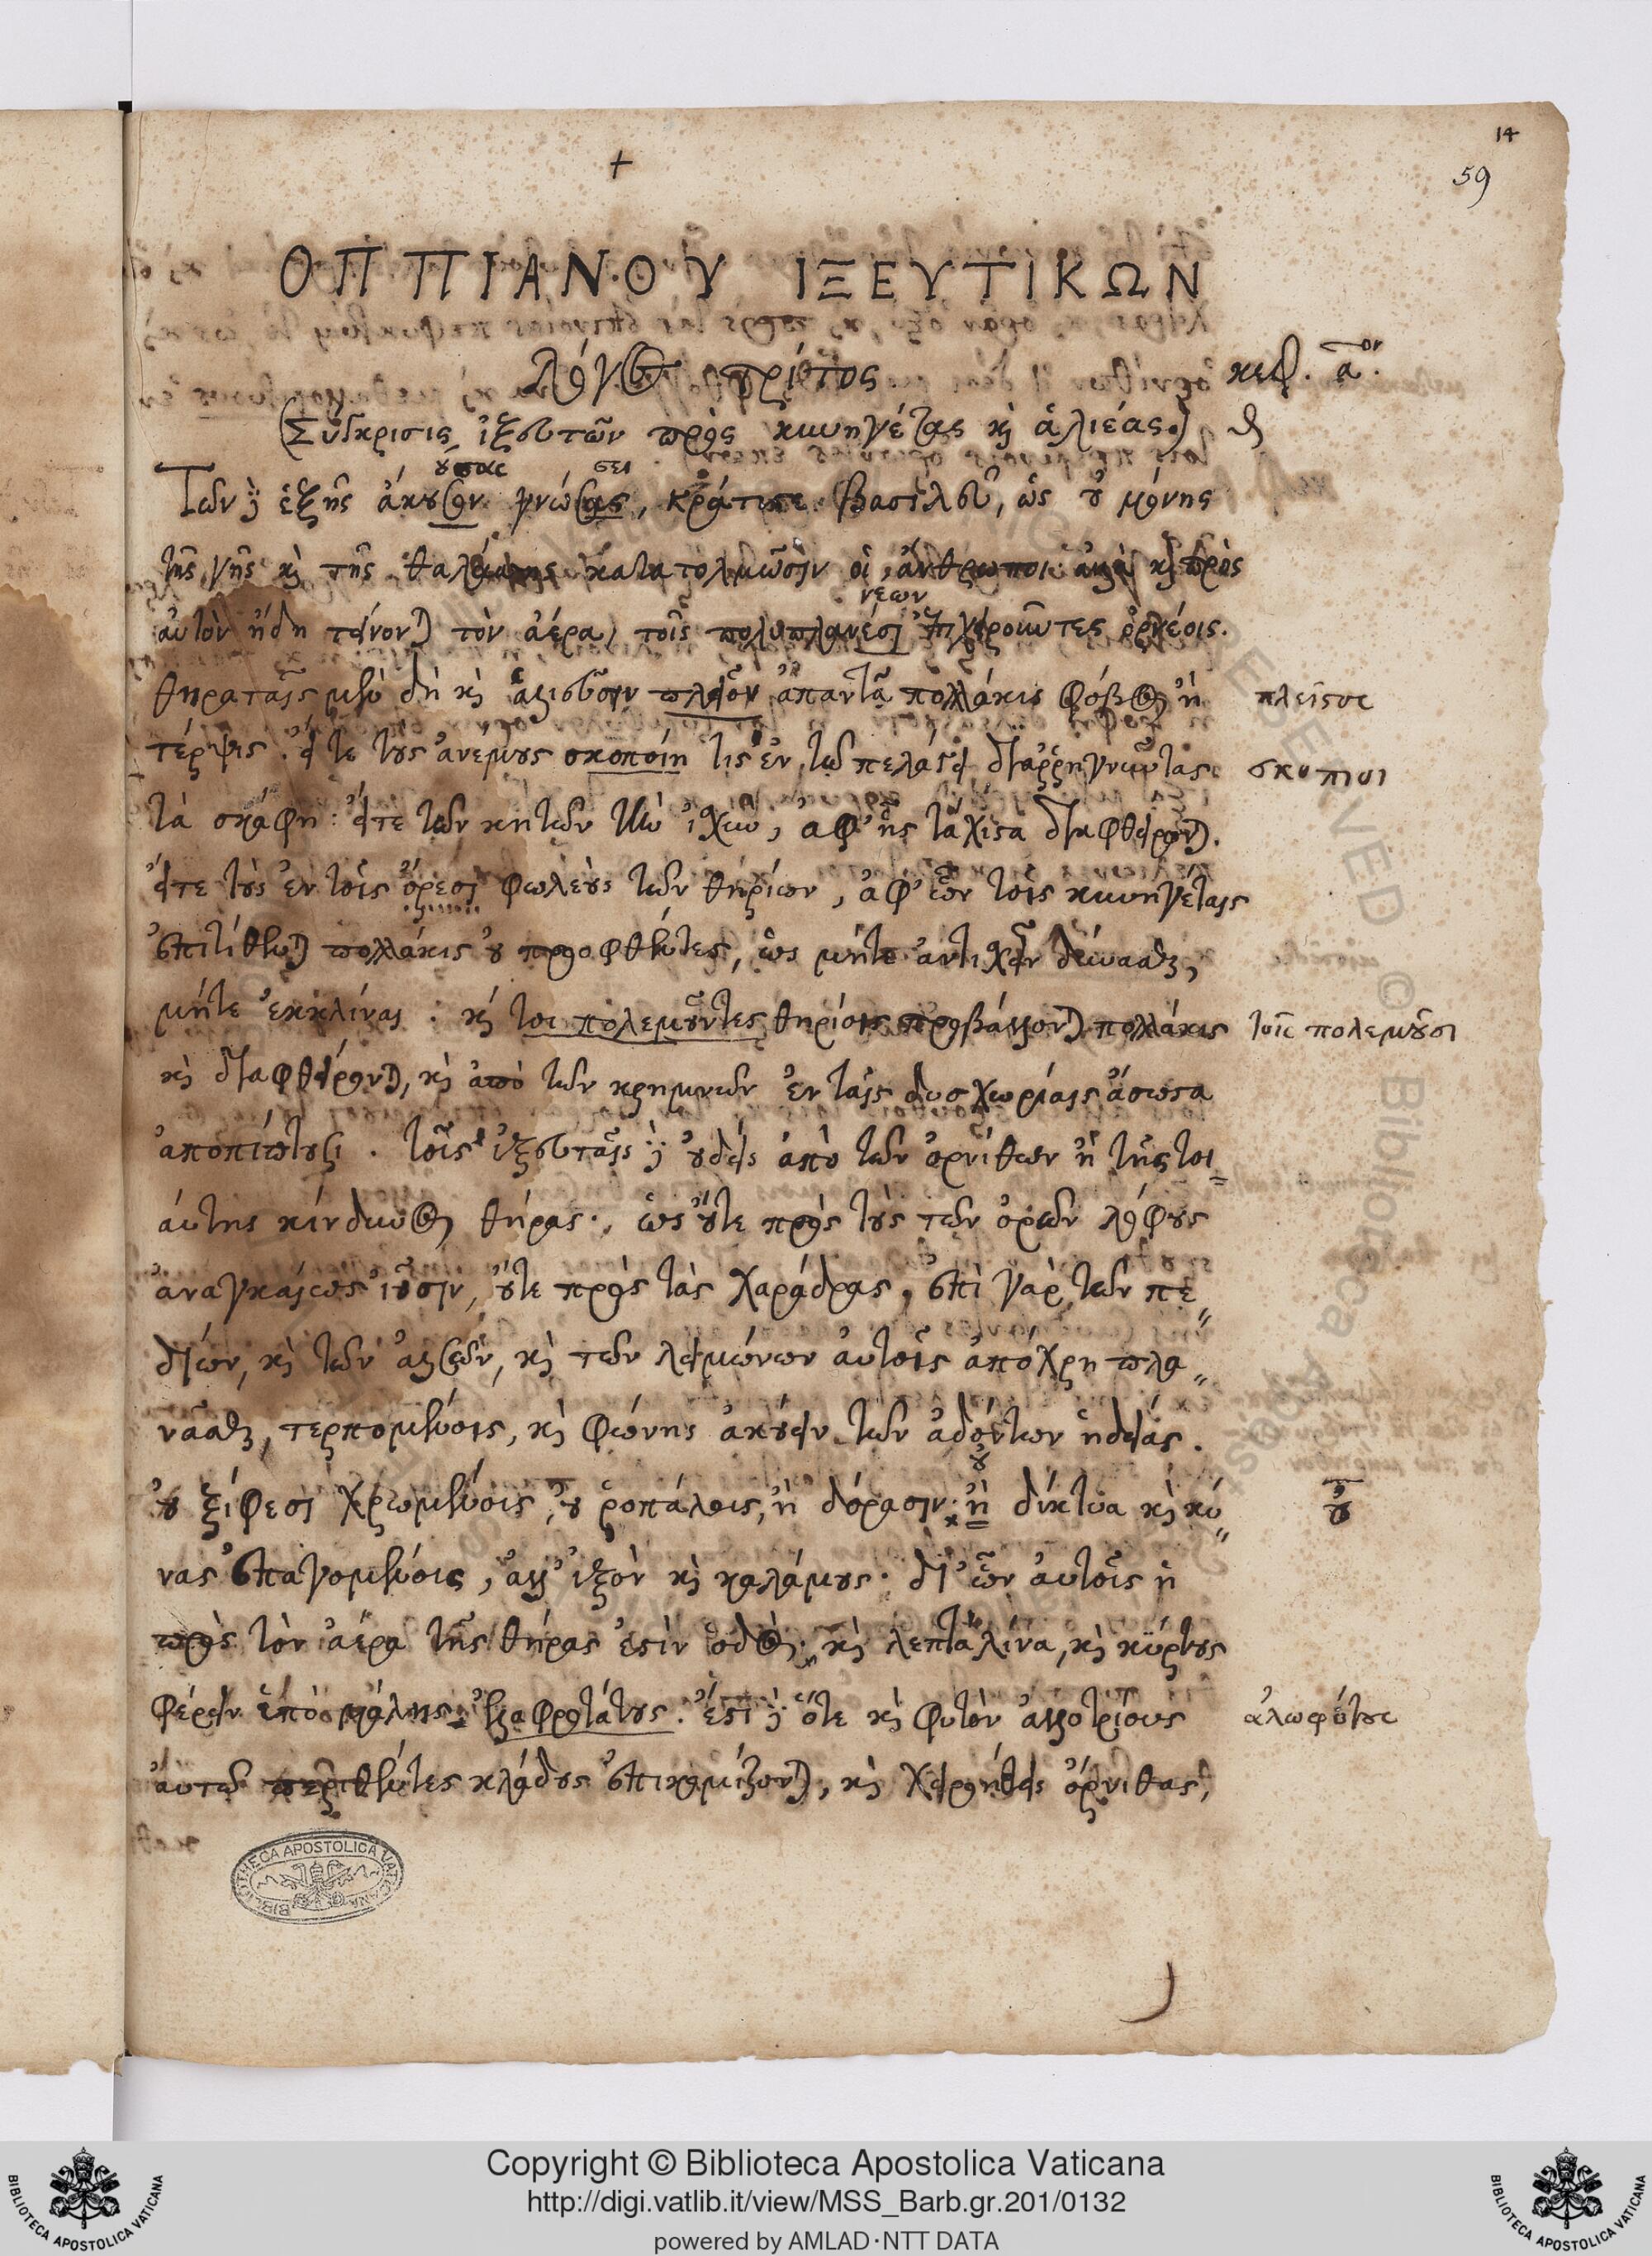 14
59
+
ΟΠΠΙΑΝΟΥ ΙΞΕΥΤΙΚΩΝ
λόγος τρίτος κεφ. α.ον
(Σύγκρισις ἰξευτῶν πρὸς κυνηγέτας κὶ ἁλιέας.)
ύσας σει
Τῶν δὲ ἑξῆς ἄκουσον γνώσας, κράτιστε βασιλεῦ, ὡς οὐ μόνης
τῆς γῆς κὶ τῆς θαλάττης κατατολμῶσιν οἱ ἄνθρωποι ἀλλὰ κὶ πρὸς
νέων
αὐτὸν ἤδη τείνονται τὸν ἀέρα, τοῖς πολυπλανέσι ἐπιχειροῦντες ὀρνέοις.
θηραταῖς μὲν δὴ κὶ ἁλιεῦσιν πλεῖον ἀπαντᾶ πολλάκις φόβος ἢ πλεῖστος
τέρψις. εἴτε τοὺς ἀνέμους σκοποίη τὶς ἐν τῷ πελάγει διαρρηγνύντας σκοποῖ
τὰ σκάφη: εἴτε τῶν κητῶν τὴν ἰσχὺν, ἀφ' ἧς τάχιστα διαφθείρονται.
εἴτε τοὺς ἐν τοῖς ὄρεσι φωλεοὺς τῶν θηρίων, ἀφ' ὧν τοῖς κυνηγέταις
ἐπιτίθενται πολλάκις οὐ προοφθέντες, ὡς μήτε ἀντισχεῖν δύνασθαι,
μήτε ἐκκλῖναι. κὶ τοι πολεμοῦντες θηρίοις προσβάλλονται πολλάκις τοῖς πολεμοῦσι
κὶ διαφθείρονται, κὶ ἀπὸ τῶν κρημνῶν ἐν ταῖς δυσχωρίαις ἄσωστα
ἀποπίπτουσι. τοῖς ἰξευταῖς δὲ οὐδεὶς ἀπὸ τῶν ὀρνίθων ἢ τῆς τοι=
αύτης κίνδυνος θήρας., ὡς οὔτε πρὸς τοὺς τῶν ὀρῶν λόφους
ἀναγκαίως ἰοῦσιν, οὔτε πρὸς τὰς χαράδρας, ἐπὶ γὰρ τῶν πε=
δίων, κὶ τῶν ἀλσῶν, κὶ τῶν λειμώνων αὐτοῖς ἀπόχρη πλα=
νᾶσθαι, τερπομένοις, κὶ φωνῆς ἀκούειν τῶν ἀδόντων ἡδείας.
οὐ
οὐ ξίφεσι χρωμένοις, οὐ ῥοπάλοις, ἢ δόρασιν. ἢ δίκτυα κὶ κύ= οὐ
νας ἐπαγομένοις, ἀλλ' ἰξὸν κὶ καλάμους. δι' ὧν αὐτοῖς ἡ
πρὸς τὸν ἀέρα τῆς θήρας ἐστὶν ὁδὸς. κὶ λεπτὰ λίνα, κὶ κύρτους
φέρειν ὑπὸ μάλης ἐλαφροτάτους. ἔστι δὲ ὅτε κὶ φυτὸν ἀλλοτρίους
αὐτῷ περιθέντες κλάδους ἐπικομίζονται, κὶ χειροήθεις ὄρνιθας,
BIBLIOTHECA APOSTOLICA VATICANA
Copyright © Biblioteca Apostolica Vaticana
http://digi.vatlib.it/view/MSS_Barb.gr.201/0132
powered by AMLAD·NTT DATA
BIBLIOTECA APOSTOLICA VATICANA
BIBLIOTECA APOSTOLICA VATICANA